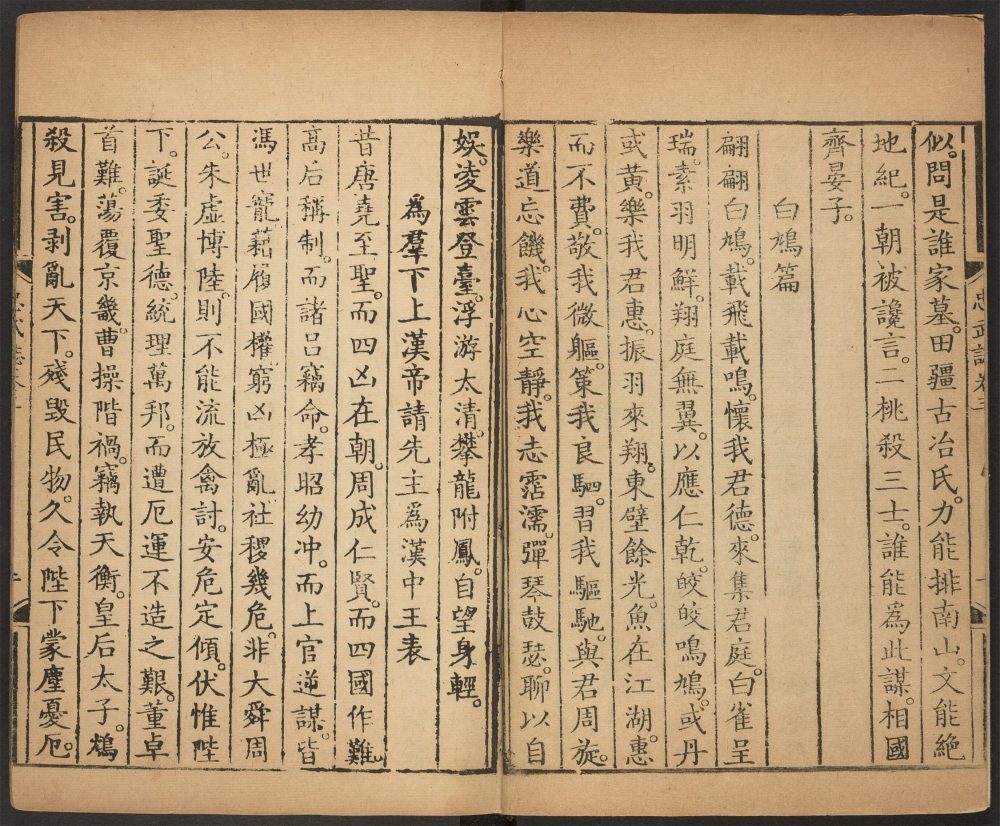 似。問是誰家墓。田疆古冶氏。力能排南山。文能絶
地紀。一朝被讒言。二桃殺三士。誰能爲此謀。相國
齊晏子。
白鳩篇
翩翩白鳩。載飛載鳴。懷我君德。來集君庭。白雀呈
瑞。素羽明鮮。翔庭無翼。以應仁乾。皎皎鳴鳩。或丹
或黃。樂我君惠。振羽來翔。東壁餘光。魚在江湖。惠
而不費。敬我微軀。策我良駟。習我驅馳。與君周旋。
樂道忘饑。我心空靜。我志霑濡。彈琴鼓瑟。聊以自
娛。凌雲登臺。浮游太清。攀龍附鳳。自望身輕。
爲羣下上漢帝請先主爲漢中王表
昔唐堯至聖。而四凶在朝。周成仁賢。而四國作難。
高后稱制。而諸呂竊命。孝昭幼冲。而上官逆謀。皆
馮世寵。藉履國權。窮凶極亂。社稷幾危。非大舜周
公。朱虛博陸。則不能流放禽討。安危定傾。伏惟陛
下。誕委聖德。統理萬邦。而遭厄運不造之艱。董卓
首難。蕩覆京畿。曹操階禍。竊執天衡。皇后太子。鴆
殺見害。剥亂天下。殘毁民物。久令陛下蒙塵憂厄。